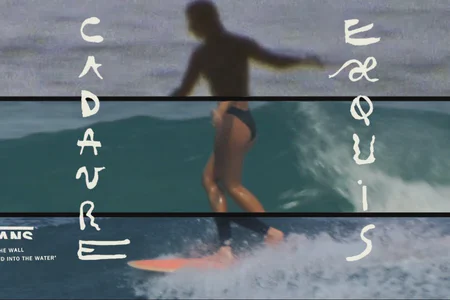 CADAVRE
EXQUIS
ANS
HE WALL
D INTO THE WATER"